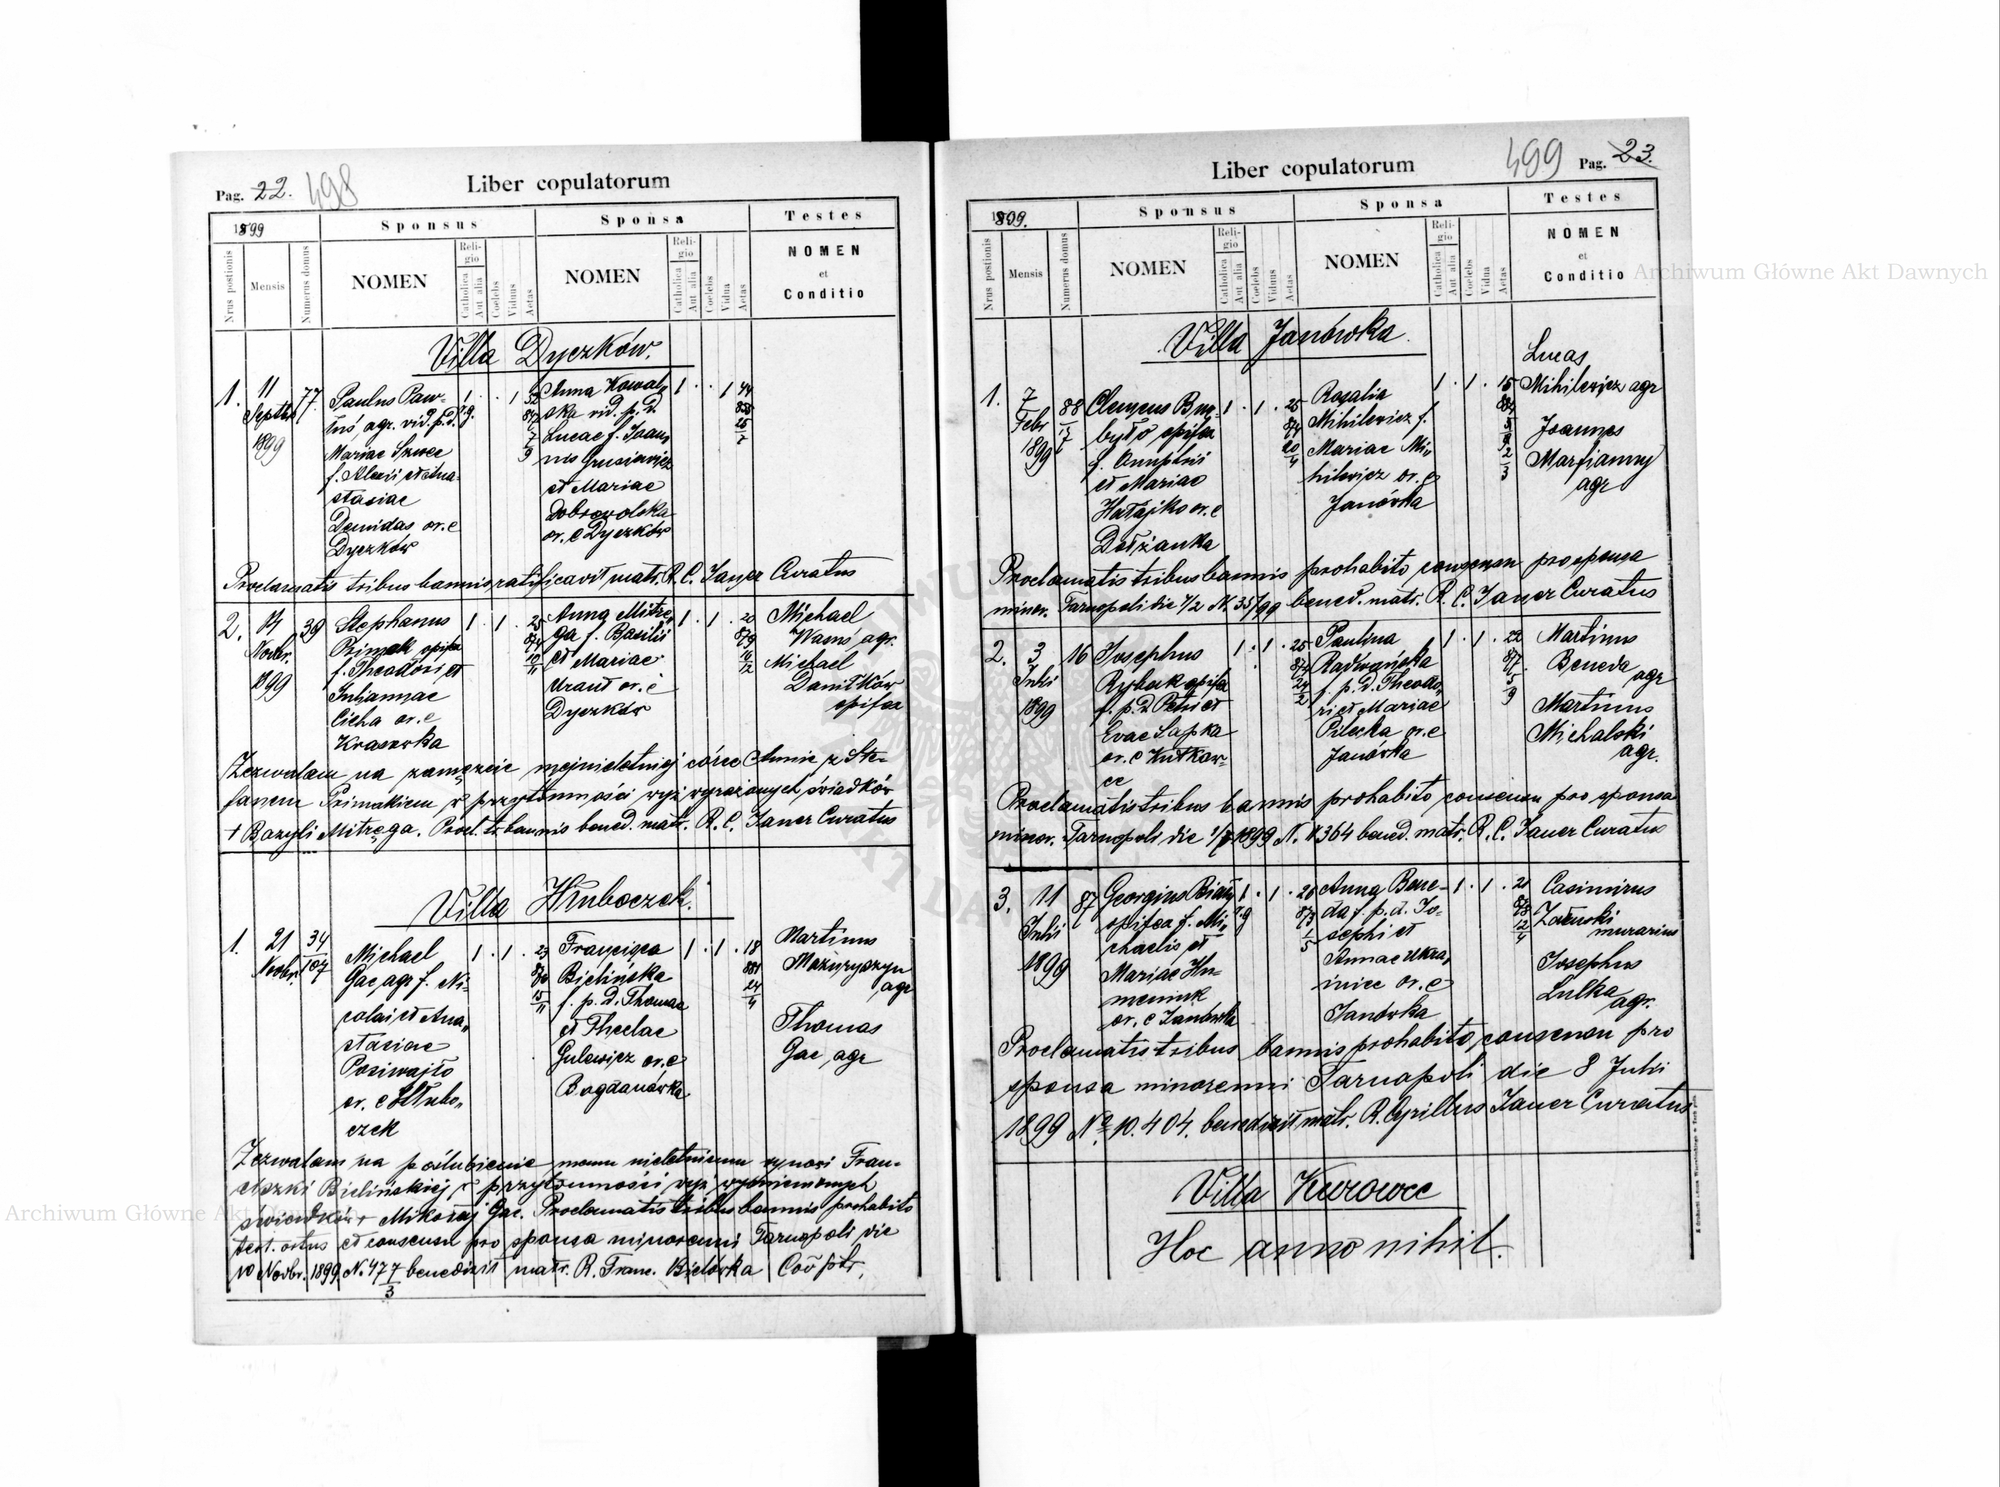 Pag. 22. 498
Liber copulatorum
1899
Sponsus
Sponsa
Testes
Nrus postionis
Mensis
Numerus domus
NOMEN
Religio
Catholica
Aut alia
Coelebs
Viduus
Aetas
NOMEN
Religio
Catholica
Aut alia
Coelebs
Vidua
Aetas
NOMEN
et
Conditio
Villa Dyczków.
1. 11 Septbr 1899 77.
Paulus Paw-
luś, agr. vid. p. d.
Mariae Szwec
f. Alexii et Ana-
stasiae
Demidas or. e
Dyczków
1 . . 1 52
r. g.
847
7
9
Anna Kowal-
ska vid. p. d.
Lucae f. Joan-
nis Grusiewicz
et Mariae
Dobrowolska
or. e Dyczków
1 . . 1 44
855
25
7
Proclamatis tribus bannis ratificavit matr. R. C. Janer Curatus
2. 14 Novbr. 1899 39
Stephanus
Primak opifex
f. Theodori et
Juliannae
Cicha or. e
Krasówka
1 . 1 . 25
874
10
11
Anna Mitrę-
ga f. Basilii
et Mariae
Uraut or. e
Dyczków
1 . 1 . 20
879
16
12
Michael
Wamś, agr.
Michael
Daniłków
opifex
Zezwalam na zamęzcie mojnieletniej córce Annie z Ste-
fanem Primakiem w przytomności wyż wyrażonych świadków
+ Bazyli Mitręga. Procl. tr. bannis bened. matr. R. C. Janer Curatus
Villa Hłuboczek.
1. 21 Novbr. 34
107
Michael
Gac, agr. f. Ni-
colai et Ana-
stasiae
Posiwajło
or. e Hłubo-
czek
1 . 1 . 23
876
15
11
Francisca
Bielińska
f. p. d. Thomae
et Theclae
Gulewicz or. e
Bogdanówka
1 . 1 . 18
881
24
4
Martinus
Mazuryszyn
agr
Thomas
Gac, agr
Zezwalam na poślubienie memu nieletniemu synowi Fran-
ciszki Bielińskiej w przytomności wyż wymienionych
świadków + Mikołaj Gac. Proclamatis tribus bannis prohabito
test. ortus et consensu pro sponsa minorenni Tarnopoli die
10 Novbr. 1899 N. 477/3 benedixit matr. R. Franc. Bielówka Coo ptr.
499 Pag. 23.
Liber copulatorum
1899.
Sponsus
Sponsa
Testes
Nrus postionis
Mensis
Numerus domus
NOMEN
Religio
Catholica
Aut alia
Coelebs
Viduus
Aetas
NOMEN
Religio
Catholica
Aut alia
Coelebs
Vidua
Aetas
NOMEN
et
Conditio
Villa Janówka.
1. 7 Febr 1899 88
Clemens Buy-
było opifex
f. Onuphrii
et Mariae
Hałajko or. e
Dołżanka
1 . 1 . 25
874
20
4
Rosalia
Mihilewicz f.
Mariae Mi-
hilewicz or. e
Janówka
1 . 1 . 15
884
Lucas
Mihilewicz agr
Joannes
Marcianny
agr
Proclamatis tribus bannis prohabito consensu pro sponsa
minor. Tarnopoli die 4/2 N. 35/99 bened. matr. R. C. Janer Curatus
2. 3 Julii 1899 16
Josephus
Rybak opifex
f. p. d. Petri et
Evae Sapka
or. e Kutkow-
ce
1 . 1 . 25
874
24
2
Paulina
Radwańska
f. p. d. Theodo-
ri et Mariae
Pilecka or. e
Janówka
1 . 1 . 22
877
5
9
Martinus
Beneda
agr
Martinus
Michalski
agr.
Proclamatis tribus bannis prohabito consensu pro sponsa
minor. Tarnopoli die 1/7 1899 N. 10364 bened. matr. R. C. Janer Curatus
3. 11 Julii 1899 87
Georgius Biały
opifex f. Mi-
chaelis et
Mariae Hu-
meniuk
or. e Janówka
1 . 1 . 26
r. g
873
1
5
Anna Bene-
da f. p. d. Jo-
sephi et
Annae Ukra-
iniec or. e
Janówka
1 . 1 . 21
878
12
4
Casimirus
Załuski
murarius
Josephus
Lulka
agr.
Proclamatis tribus bannis prohabito, consensu pro
sponsa minorenni Tarnopoli die 8 Julii
1899 No 10.404. benedixit matr. R. Cyrillus Janer Curatus
Villa Kurowce
Hoc anno nihil.
Archiwum Główne Akt Dawnych
Archiwum Główne Akt Dawnych